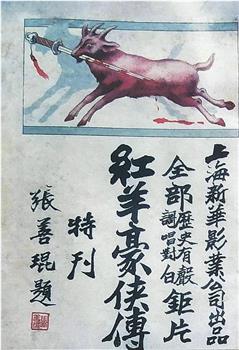 上海新華影業公司出品
全部歷史有聲
調唱對白
鉅片
紅羊豪俠傳
特刊
張善琨題